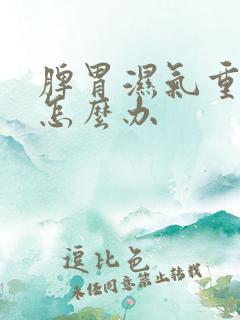 脾胃濕氣重
怎麽办
逗比色
未经同意禁止转载